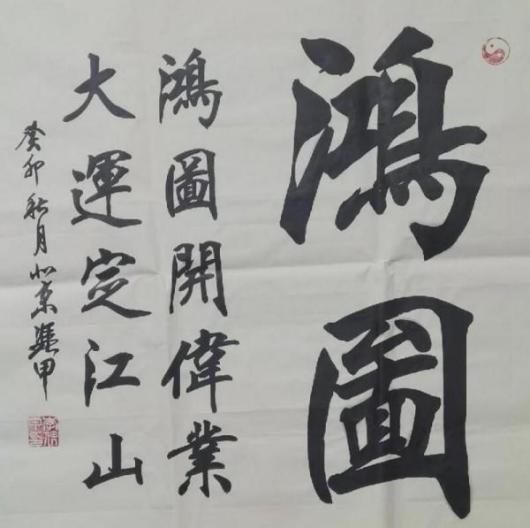 鴻圖
鴻圖開偉業
大運定江山
癸卯秋月北京題甲